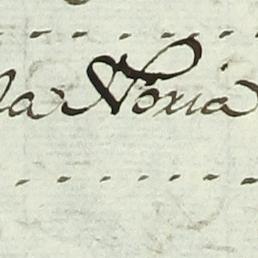 la Noria